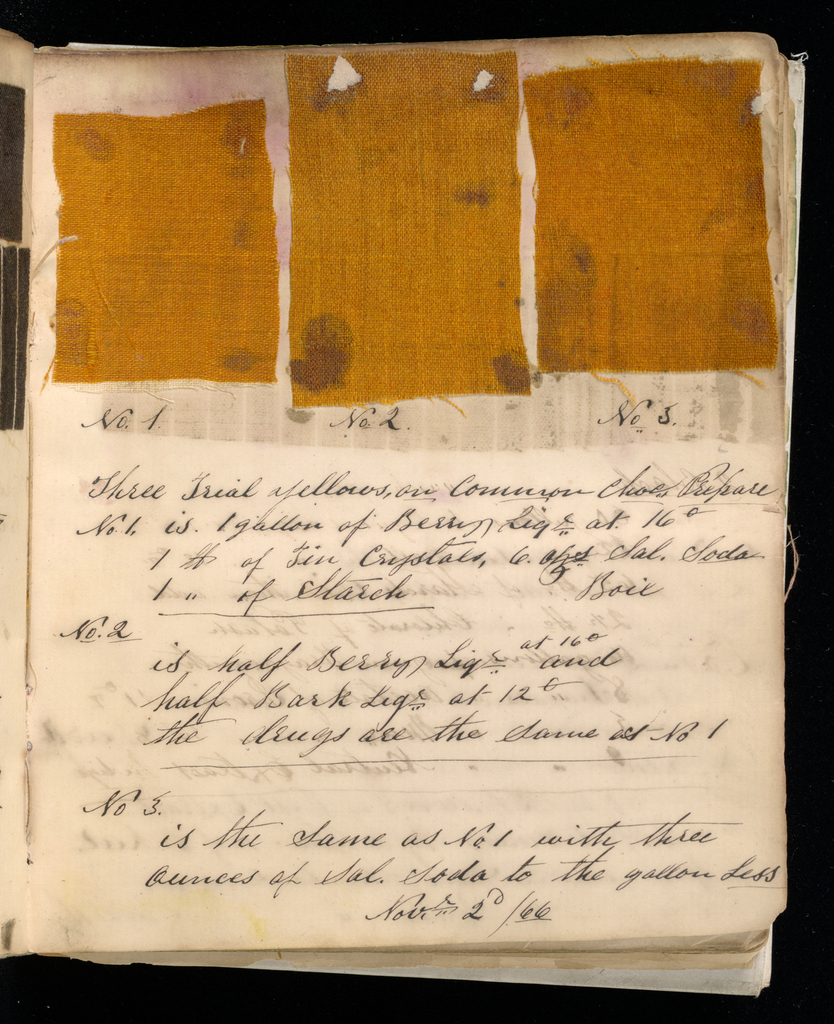 No. 1. No. 2. No 3.
Three Trial yellows, on Common Prepare
No. 1. is. 1 gallon of Berry Liqr at 16°
1 ℔ of Tin Crystals, 6. ozs Sal. Soda
1 " of Starch Boil
No. 2
is half Berry Liqr at 16° and
half Bark Liqr at 12°
the drugs are the same as No 1
No 3.
is the same as No. 1 with three
ounces of Sal. Soda to the gallon Less
Novr 2D /66